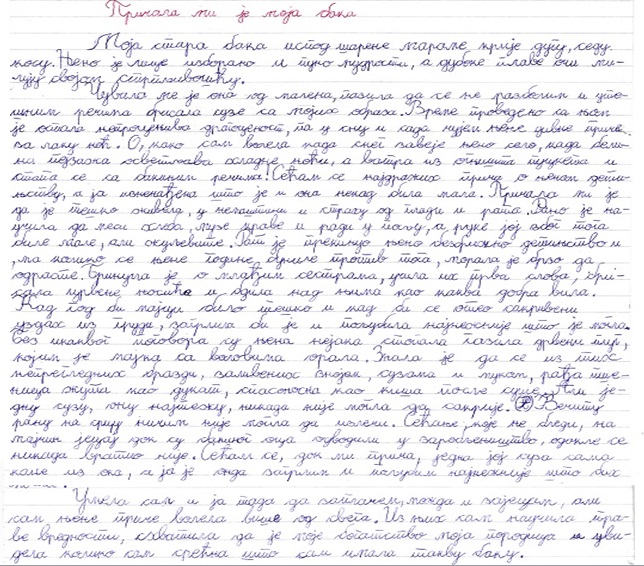 Причала ми је моја бака
Моја стара бака испод шарене мараме крије дугу, седу
косу. Њено је лице изборано и пуно мудрости, а дубоке плаве очи ми-
лују својом стрпљивошћу.
Чувала ме је она од малена, пазила да се не разболим и уто-
лим речима брисала сузе са мојих образа. Време проведено са њом
је остала непроцењива драгоценост, па у сну и сада чујем њене дивне приче
за лаку ноћ. О, како сам волела када снег завеје њено село, када бели-
на обасјава хладне ноћи, а ватра из огњишта пуцкета и
стапа се са бакиним речима! Сећам се најдражих прича о њеном детињ-
ињству, а ја изненађена што је и она некад била мала. Причала ми је
да је тешко живела, у немаштини и страху од глади и рата. Рано је на-
учила да меси хлеба, музе краве и ради у пољу, а руке јој због тога
биле мале, али окретне. Рат је прекинуо њено безбрижно детињство и
, ма колико се њене године буниле против тога, морала је брзо да
одрасте. Бринула је о млађим сестрама, учила их прва слова, бри-
сала црвене носиће и бдила над њима као каква добра вила.
Кад год би мајци било тешко и кад би се отео сакривени
уздах из груди, загрлила би је и пољубила најнежније што је могла.
Без икаквог поговора су њена нејака стопала газила дрвени плуг,
којим је мајка са воловима орала. Знала је да се из тих
непрегледних бразди, заливених знојем, сузама и муком, рађа пше-
ница жута као дукат, спасоносна као киша после суше. Али је-
дну сузу, ону најтежу, никада није могла да сакрије. Вечиту
рану на срцу ничим није могла да излечи. Сећање, које не бледи, на
мајчин јецај док су бакиног оца одводили у заробљеништво, одакле се
никада вратио није. Сећам се, док ми прича, једна јој суза сама
кане из ока, а ја је онда загрлим и пољубим најнежније што бих
Умела сам и ја тада да заплачем, можда и зајецам, али
сам њене приче волела више од света. Из њих сам научила пра-
ве вредности, схватила да је моје богатство моја породица и уви-
дела колико сам срећна што сам имала такву баку.